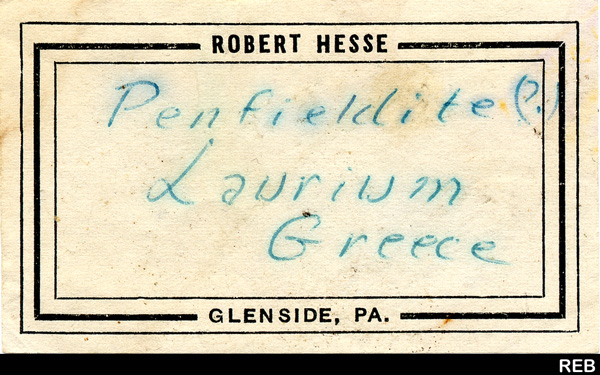 ROBERT HESSE
Penfieldite (?)
Laurium
Greece
GLENSIDE, PA.
REB